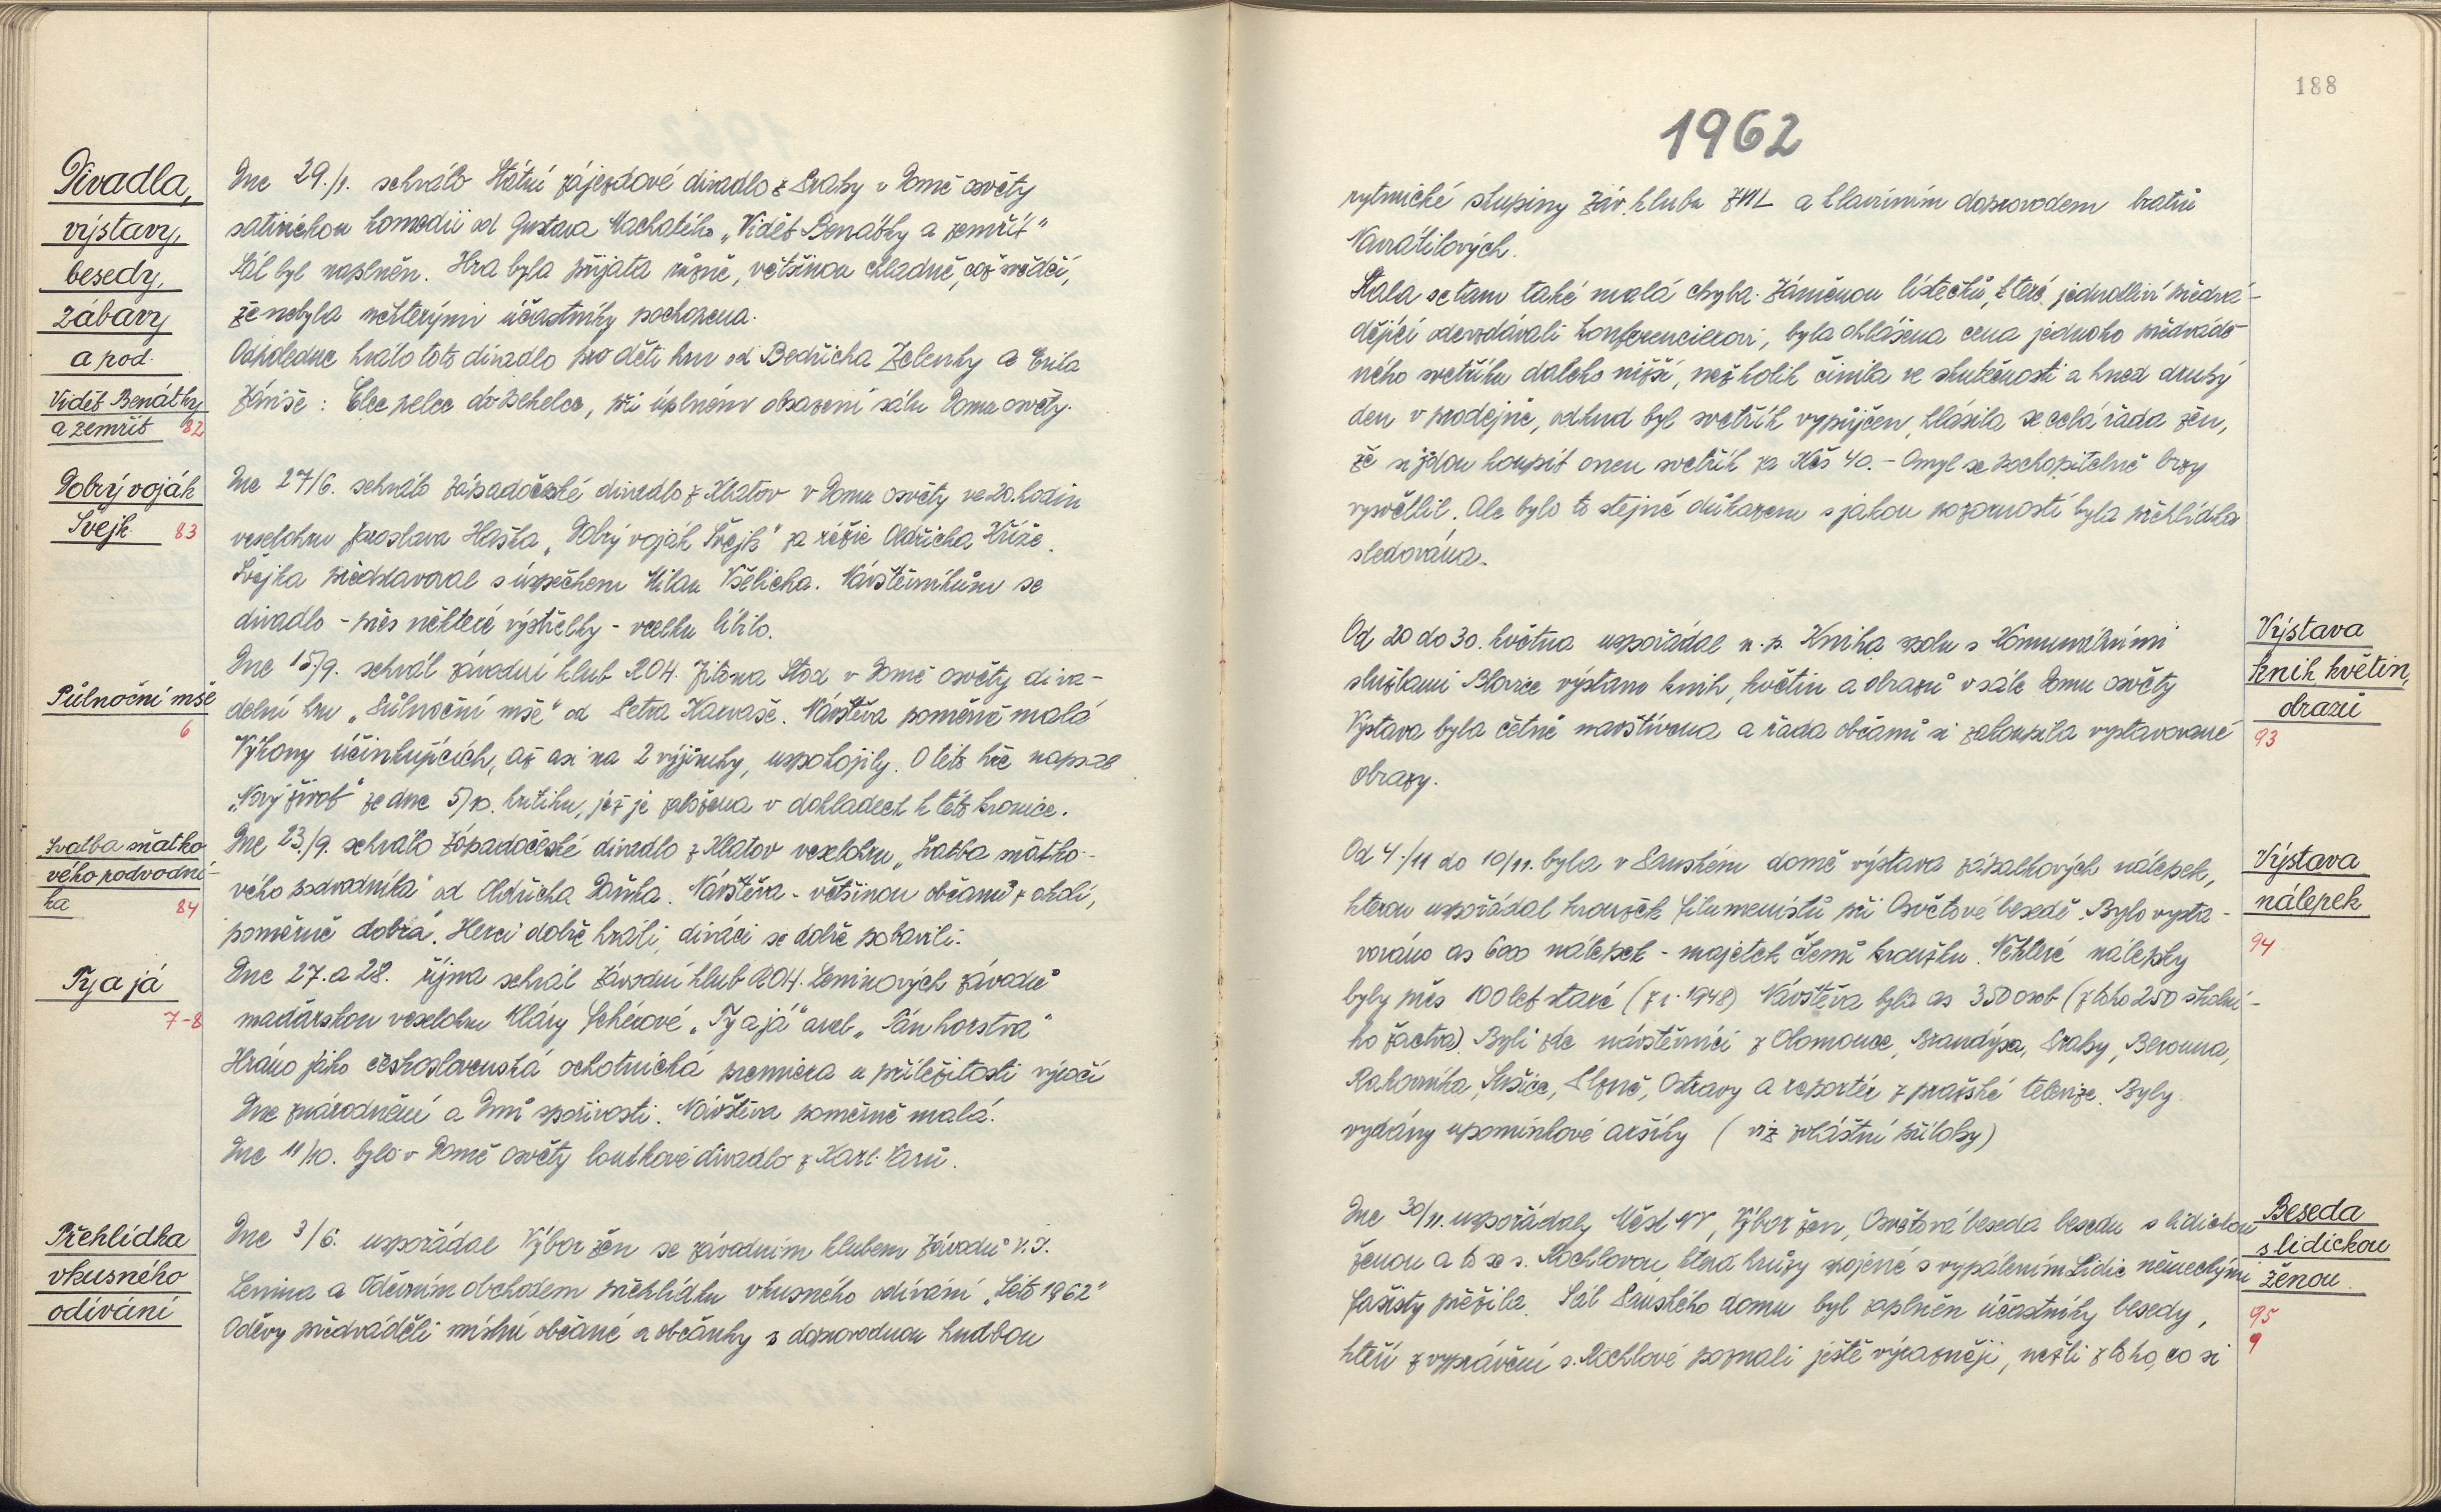 Divadla,
výstavy,
besedy,
zábavy
a pod.
Vidět Benátky
a zemřít 82
Dne 29./1. sehrálo Státní zájezdové divadlo z Prahy v Domě osvěty
satirickou komedii od Gustava Machatého „Vidět Benátky a zemřít"
Sál byl naplněn. Hra byla přijata různě, většinou chladně, což svědčí,
že nebyla některými účastníky pochopena.
Odpoledne hrálo toto divadlo pro děti hru od Bedřicha Zelenky a Emila
Jániše: Elce pelce do pekelce, při úplném obsazení sálu Domu osvěty.
Dobrý voják
Švejk 83
Dne 27/6. sehrálo západočeské divadlo z Klatov v Domu osvěty ve 20. hodin
veselohru Jaroslava Haška „Dobrý voják Švejk" za režie Oldřicha Kříže.
Švejka představoval s úspěchem Milan Všelicha. Návštěvníkům se
divadlo - přes některé výstřelky - vcelku líbilo.
Půlnoční mše
6
Dne 15./9. sehrál závodní klub ROH. Jitona Stod v Domě osvěty diva-
delní hru „Půlnoční mše" od Petra Karvaše. Návštěva poměrně malá
Výkony účinkujících, až asi na 2 výjimky, uspokojily. O této hře napsal
„Nový život" ze dne 5/10. kritiku, jež je založena v dokladech k této kronice.
Svatba sňatko-
vého podvodní-
ka 84
Dne 23./9. sehrálo Západočeské divadlo z Klatov veselohru „Svatba sňatko-
vého podvodníka" od Oldřicha Daňka. Návštěva - většinou občanů z okolí,
poměrně dobrá. Herci dobře hráli, diváci se dobře pobavili.
Ty a já
7-8
Dne 27. a 28. října sehrál Závodní klub ROH. Leninových závodů
maďarskou veselohru Kláry Fehérové „Ty a já" aneb „Pán tvorstva"
Hráno jako československá ochotnická premiera u příležitosti výročí
Dne znárodnění a Dnů spořivosti. Návštěva poměrně malá.
Dne 11/10. bylo v Domě osvěty loutkové divadlo z Karl. Varů.
Přehlídka
vkusného
odívání
Dne 3/6. uspořádal Výbor žen se závodním klubem Závodů V.I.
Lenina a Oděvním obchodem přehlídku vkusného odívání „Léto 1962"
Oděvy předváděli místní občané a občanky s doprovodnou hudbou
188
1962
rytmické skupiny Záv. klubu ZVIL a klavírním doprovodem bratrů
Navrátilových.
Stala se tam také malá chyba. Záměnou lístečků, které jednotliví předvá-
dějící odevzdávali konferencierovi, byla ohlášena cena jednoho předvádě-
ného svetříku daleko nižší, než kolik činila ve skutečnosti a hned druhý
den v prodejně, odkud byl svetřík vypůjčen, hlásila se celá řada žen,
že si jdou koupit onen svetřík za Kčs 40.- Omyl se pochopitelně brzy
vysvětlil. Ale bylo to stejně důkazem s jakou pozorností byla přehlídka
sledována.
Výstava
knih, květin,
obrazů
93
Od 20 do 30. května uspořádal n.p. Kniha spolu s Komunálními
službami Blovice výstavu knih, květin a obrazů v sále Domu osvěty
Výstava byla četně navštívena a řada občanů si zakoupila vystavované
obrazy.
Výstava
nálepek
94
Od 4./11 do 10/11. byla v Panském domě výstava zápalkových nálepek,
kterou uspořádal kroužek filumenistů při Osvětové besedě. Bylo vysta-
vováno as 6000 nálepek - majetek členů kroužku. Některé nálepky
byly přes 100 let staré (z r. 1948) Návštěva byla as 350 osob (z toho 250 školní-
ho žactva). Byli zde návštěvníci z Olomouce, Brandýsa, Prahy, Berouna,
Rakovníka, Sušice, Plzně, Ostravy a reportér z pražské televize. Byly
vydány upomínkové aršíky (viz zvláštní přílohy)
Beseda
s lidickou
ženou.
95
9
Dne 30/11. uspořádaly Měst NV, Výbor žen, Osvětová beseda besedu s lidickou
ženou a to se s. Rochlovou, která hrůzy spojené s vypálením Lidic německými
fašisty přežila. Sál Panského domu byl zaplněn účastníky besedy,
kteří z vyprávění s. Rochlové poznali ještě výrazněji, nežli z toho, co si